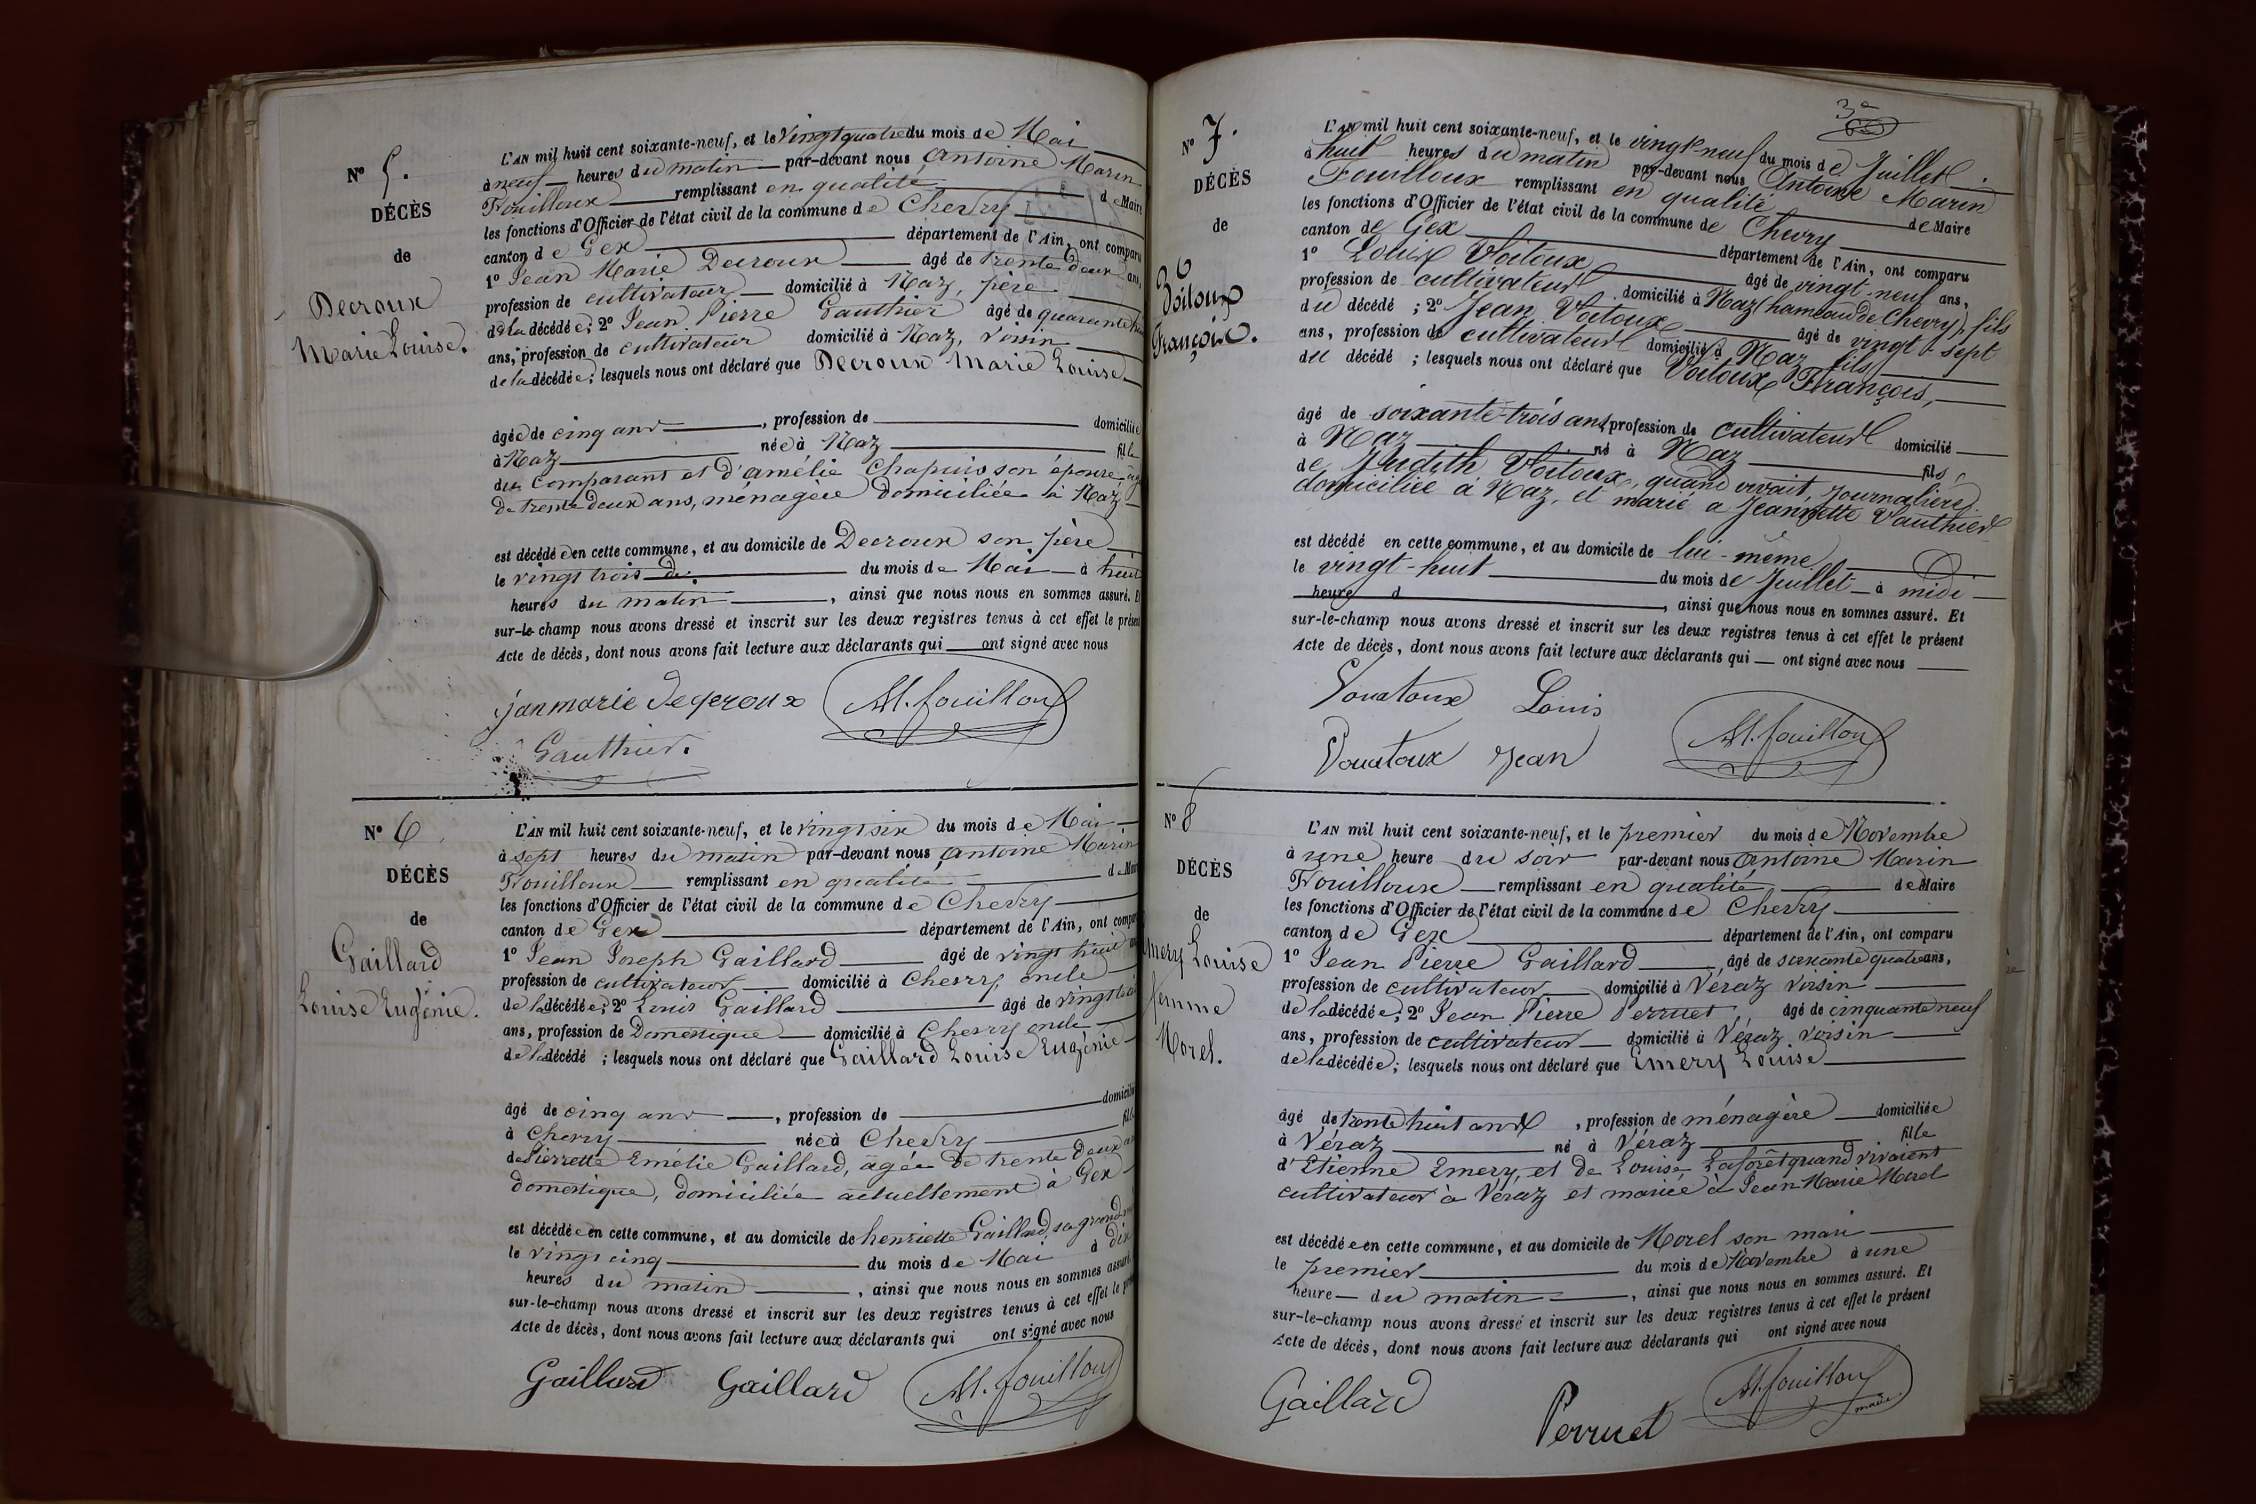 Nº 5.
DÉCÈS
de
Decroux
Marie Louise.
L'AN mil huit cent soixante-neuf, et le vingt quatre du mois de Mai
à neuf heures du matin par-devant nous Antoine Marin
Fouilloux remplissant en qualité de Maire
les fonctions d'Officier de l'état civil de la commune de Chevry
canton de Gex département de l'Ain, ont comparu
1º Jean Marie Decroux âgé de trente deux ans,
profession de cultivateur domicilié à Naz, père
de la décédée; 2º Jean Pierre Gauthier âgé de quarante
ans, profession de cultivateur domicilié à Naz, voisin
de la décédée; lesquels nous ont déclaré que Decroux Marie Louise
âgée de cinq ans, profession de domiciliée
à Naz née à Naz fille
du comparant et d'amélie Chapuis son épouse âgé
de trente deux ans, ménagère domiciliée à Naz
est décédée en cette commune, et au domicile de Decroux son père
le vingt trois du mois de Mai à huit
heures du matin, ainsi que nous nous en sommes assuré. Et
sur-le-champ nous avons dressé et inscrit sur les deux registres tenus à cet effet le présent
Acte de décès, dont nous avons fait lecture aux déclarants qui ont signé avec nous
jan marie deqeroux AM. fouilloux
Gauthier.
Nº 6
DÉCÈS
de
Gaillard
Louise Eugénie.
L'AN mil huit cent soixante-neuf, et le vingt six du mois de Mai
à sept heures du matin par-devant nous Antoine Marin
Fouilloux remplissant en qualité de Maire
les fonctions d'Officier de l'état civil de la commune de Chevry
canton de Gex département de l'Ain, ont comparu
1º Jean Joseph Gaillard âgé de vingt huit ans
profession de cultivateur domicilié à Chevry, oncle
de la décédée; 2º Louis Gaillard âgé de vingt
ans, profession de Domestique domicilié à Chevry oncle
de la décédé; lesquels nous ont déclaré que Gaillard Louise Eugénie
âgé de cinq ans, profession de domiciliée
à Chevry née à Chevry fille
de Pierrette Emélie Gaillard, agée de trente deux ans
domestique, domiciliée actuellement à Gex
est décédée en cette commune, et au domicile de henriette Gaillard, sa grand
le vingt cinq du mois de Mai à dix
heures du matin, ainsi que nous nous en sommes assuré.
sur-le-champ nous avons dressé et inscrit sur les deux registres tenus à cet effet le présent
Acte de décès, dont nous avons fait lecture aux déclarants qui ont signé avec nous
Gaillard Gaillard AM. fouilloux
3e
Nº 7.
DÉCÈS
de
Voitoux
François.
L'AN mil huit cent soixante-neuf, et le vingt-neuf du mois de Juillet.
à huit heures du matin par-devant nous Antoine Marin
Fouilloux remplissant en qualité de Maire
les fonctions d'Officier de l'état civil de la commune de Chevry
canton de Gex département de l'Ain, ont comparu
1º Louis Voitoux âgé de vingt-neuf ans,
profession de cultivateur domicilié à Naz (hameau de Chevry), fils
du décédé; 2º Jean Voitoux âgé de vingt-sept
ans, profession de cultivateur domicilié à Naz fils
du décédé; lesquels nous ont déclaré que Voitoux François,
âgé de soixante-trois ans, profession de cultivateur domicilié
à Naz né à Naz fils
de Judith Voitoux, quand vivait, journalière,
domiciliée à Naz, et marié à Jeannette Vauthier
est décédé en cette commune, et au domicile de lui-même
le vingt-huit du mois de Juillet à midi
heure d, ainsi que nous nous en sommes assuré. Et
sur-le-champ nous avons dressé et inscrit sur les deux registres tenus à cet effet le présent
Acte de décès, dont nous avons fait lecture aux déclarants qui ont signé avec nous
Vouatoux Louis
Vouatoux Jean AM. fouilloux
Nº 8
DÉCÈS
de
Emery Louise
femme
Morel.
L'AN mil huit cent soixante-neuf, et le premier du mois de Novembre
à une heure du soir par-devant nous Antoine Marin
Fouilloux remplissant en qualité de Maire
les fonctions d'Officier de l'état civil de la commune de Chevry
canton de Gex département de l'Ain, ont comparu
1º Jean Pierre Gaillard âgé de soixante quatre ans,
profession de cultivateur domicilié à Véraz voisin
de la décédée; 2º Jean Pierre Perruet, âgé de cinquante neuf
ans, profession de cultivateur domicilié à Véraz voisin
de la décédée; lesquels nous ont déclaré que Emery Louise
âgé de trente huit ans, profession de ménagère domiciliée
à Véraz né à Véraz fille
d'Etienne Emery, et de Louise Laforêt quand vivaient
cultivateur à Véraz et mariée à Jean Marie Morel
est décédée en cette commune, et au domicile de Morel son mari
le premier du mois de Novembre à une
heure du matin, ainsi que nous nous en sommes assuré. Et
sur-le-champ nous avons dressé et inscrit sur les deux registres tenus à cet effet le présent
Acte de décès, dont nous avons fait lecture aux déclarants qui ont signé avec nous
Gaillard Perruet AM. fouilloux
maire